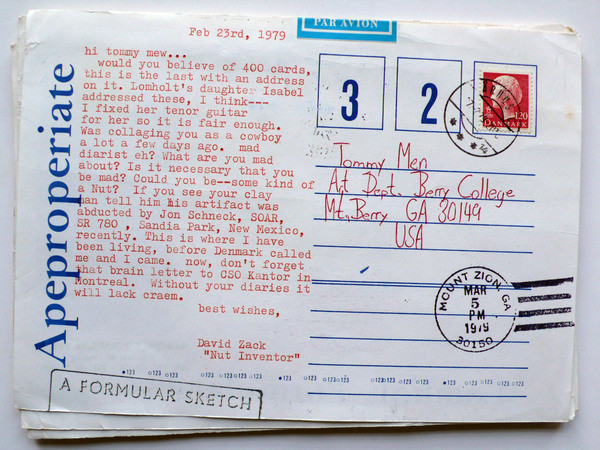 PAR AVION
Feb 23rd, 1979
hi tommy mew...
would you believe of 400 cards,
this is the last with an address
on it. Lomholt's daughter Isabel
addressed these, I think---
I fixed her tenor guitar
for her so it is fair enough.
Was collaging you as a cowboy
a lot a few days ago. mad
diarist eh? What are you mad
about? Is it necessary that you
be mad? Could you be--some kind of
a Nut? If you see your clay
man tell him his artifact was
abducted by Jon Schneck, SOAR,
SR 780 , Sandia Park, New Mexico,
recently. This is where I have
been living, before Denmark called
me and I came. now, don't forget
that brain letter to CSO Kantor in
Montreal. Without your diaries it
will lack craem.
best wishes,
David Zack
"Nut Inventor"
Apeproperiate
A FORMULAR SKETCH
3 2
120
DANMARK
Tommy Men
Art Dept. Berry College
Mt. Berry GA 30149
USA
MOUNT ZION, GA
MAR
5
PM
1979
30150
123 0123 0123 0123 0123 0123 0123 0123 0123 0123 0123 0123 0123